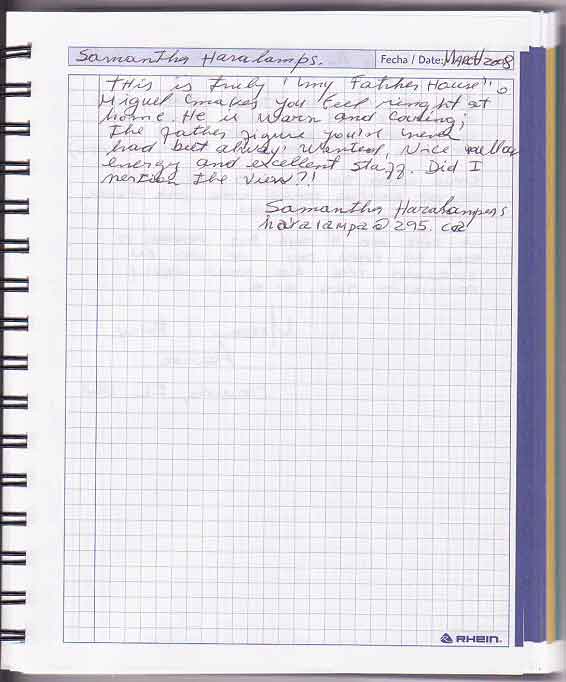 Samantha Haralamps.
Fecha / Date: MARCH 2008
This is truly "my Father House".
Miguel makes you feel right at
home. He is warm and caring;
The father figure you've never
had but always wanted. Nice
energy and excellent staff. Did I
mention the view?!
Samantha
RHEIN.